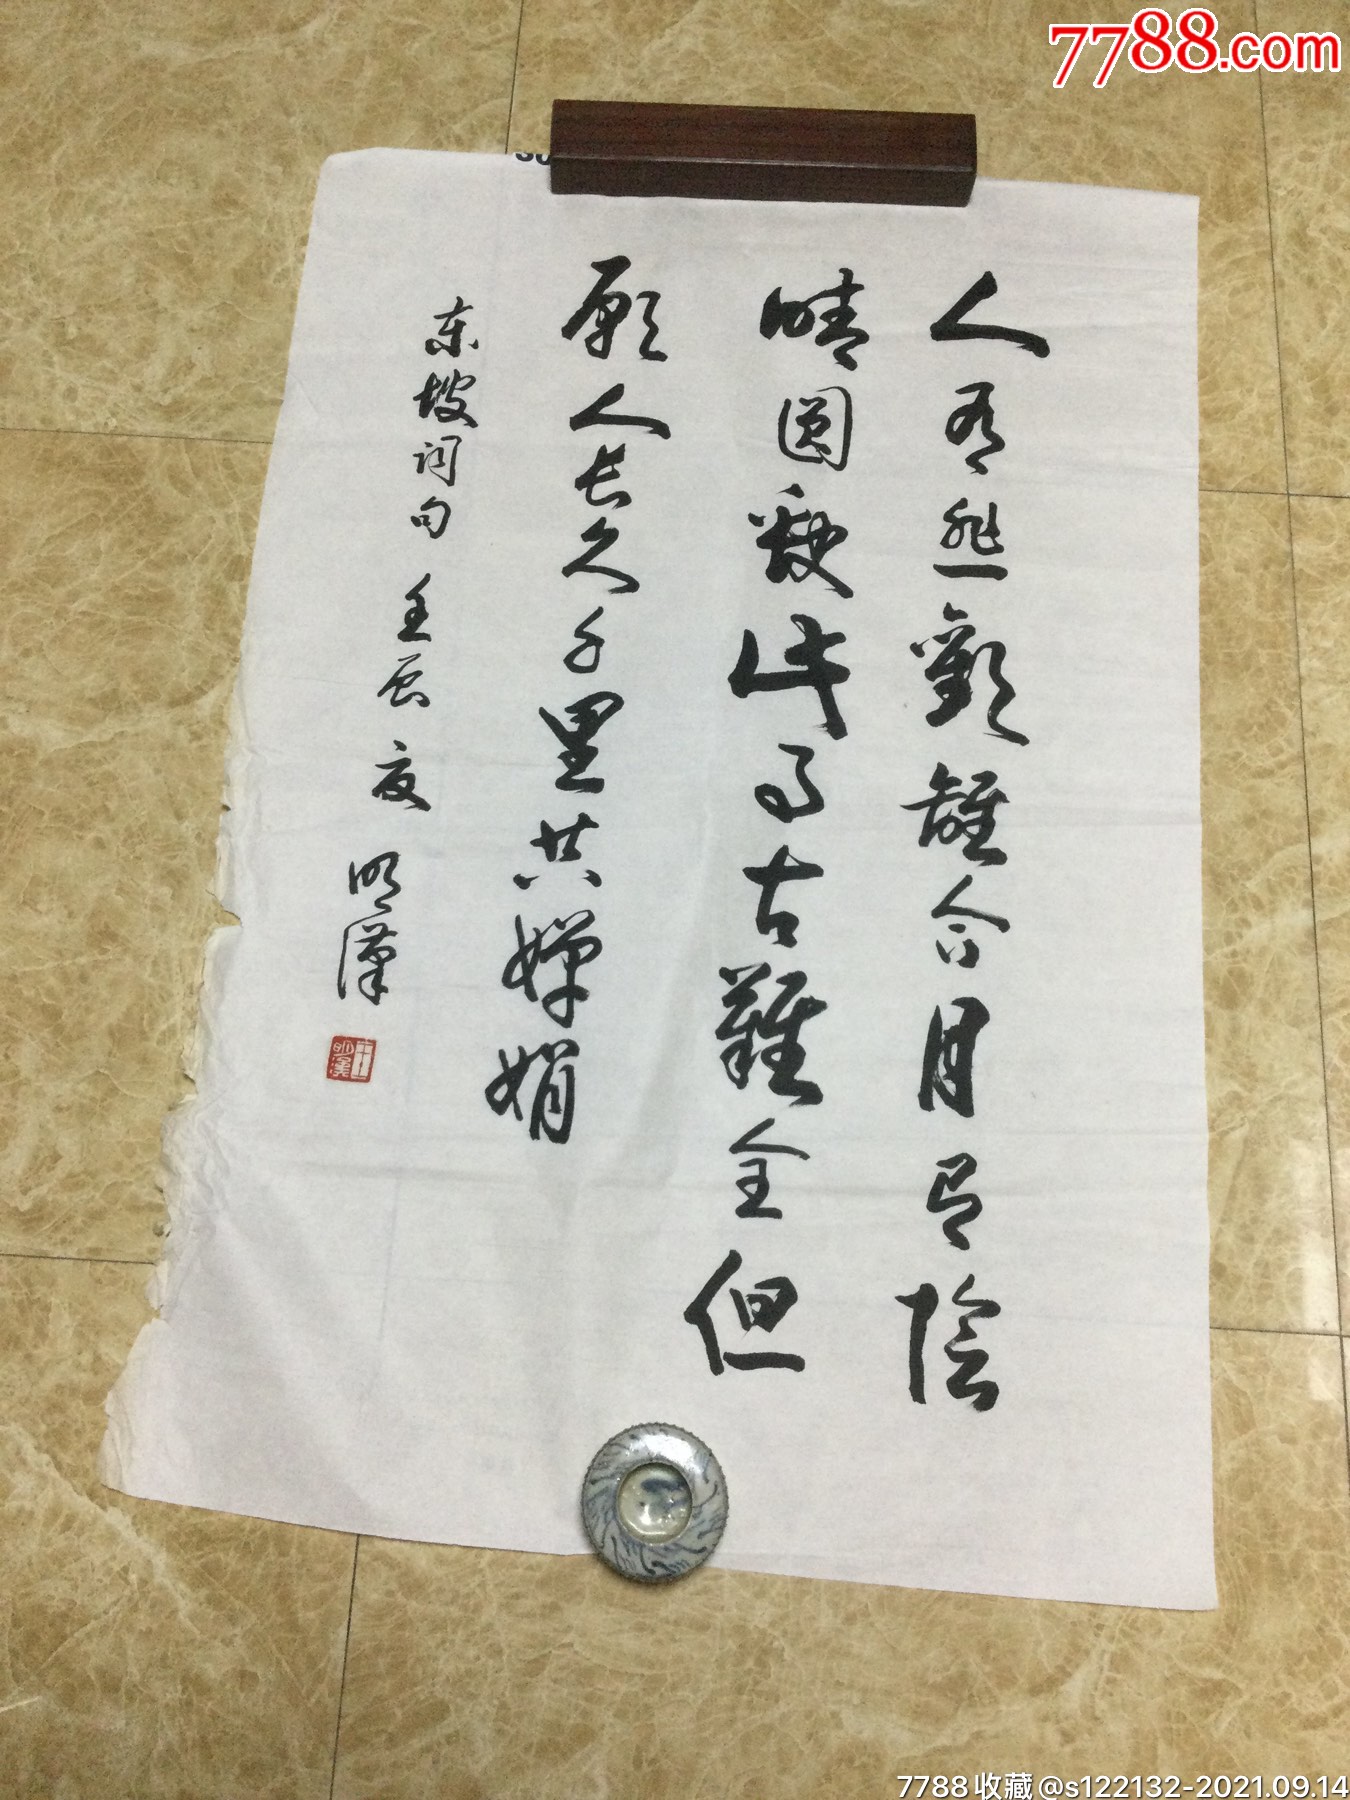 7788.com
人有悲歡離合月有陰
晴圓缺此事古難全但
願人長久千里共嬋娟
东坡词句 壬辰夏 明漢
王明漢
7788收藏@s122132-2021.09.14